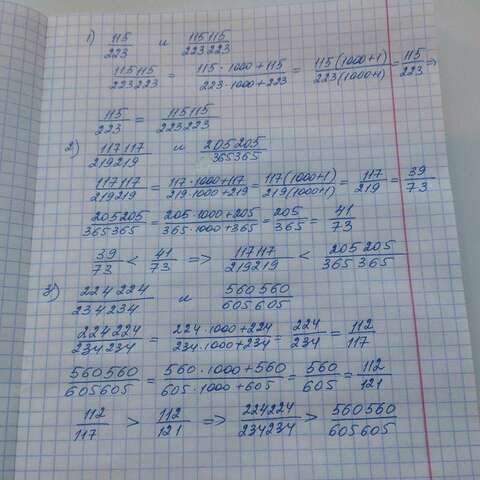 1) 115/223 и 115115/223223
115115/223223 = 115·1000+115/223·1000+223 = 115(1000+1)/223(1000+1) = 115/223 ⇒
115/223 = 115115/223223
2) 117117/219219 и 205205/365365
117117/219219 = 117·1000+117/219·1000+219 = 117(1000+1)/219(1000+1) = 117/219 = 39/73
205205/365365 = 205·1000+205/365·1000+365 = 205/365 = 41/73
39/73 < 41/73 => 117117/219219 < 205205/365365
3) 224224/234234 и 560560/605605
224224/234234 = 224·1000+224/234·1000+234 = 224/234 = 112/117
560560/605605 = 560·1000+560/605·1000+605 = 560/605 = 112/121
112/117 > 112/121 => 224224/234234 > 560560/605605